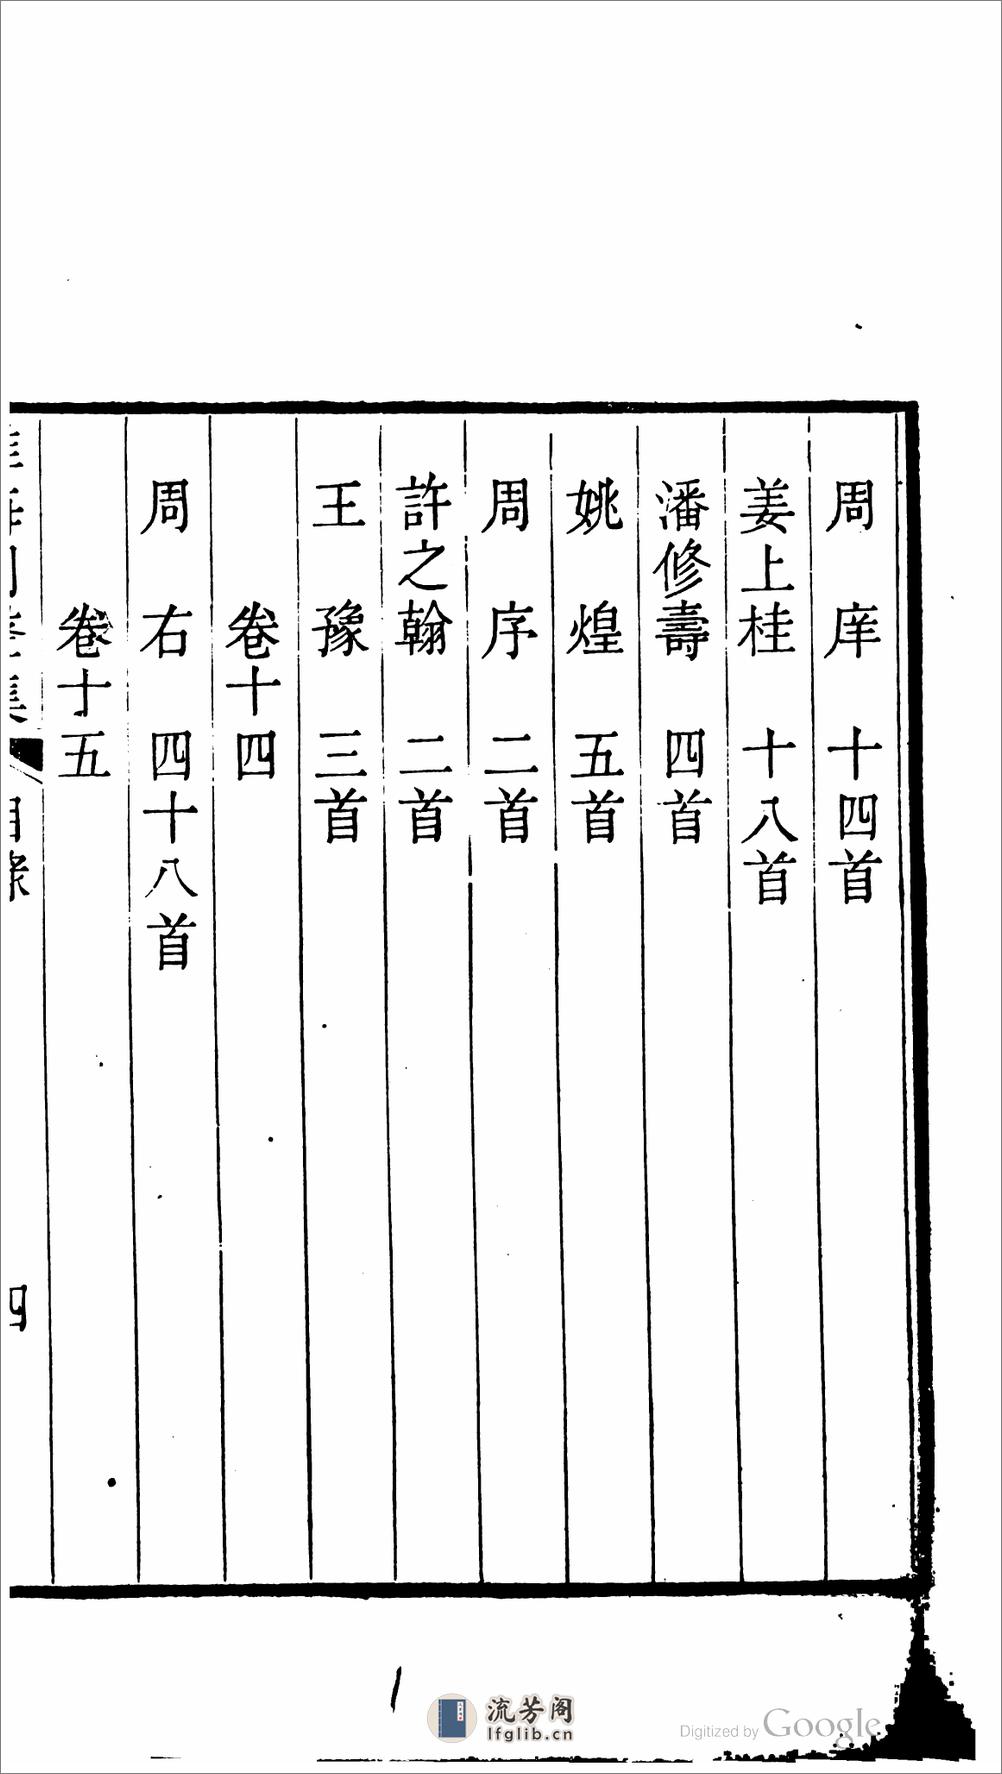 周庠 十四首
姜上桂 十八首
潘修壽 四首
姚煌 五首
周序 二首
許之翰 二首
王豫 三首
卷十四
周右 四十八首
卷十五
目錄
四
流芳阁
lfglib.cn
Digitized by Google